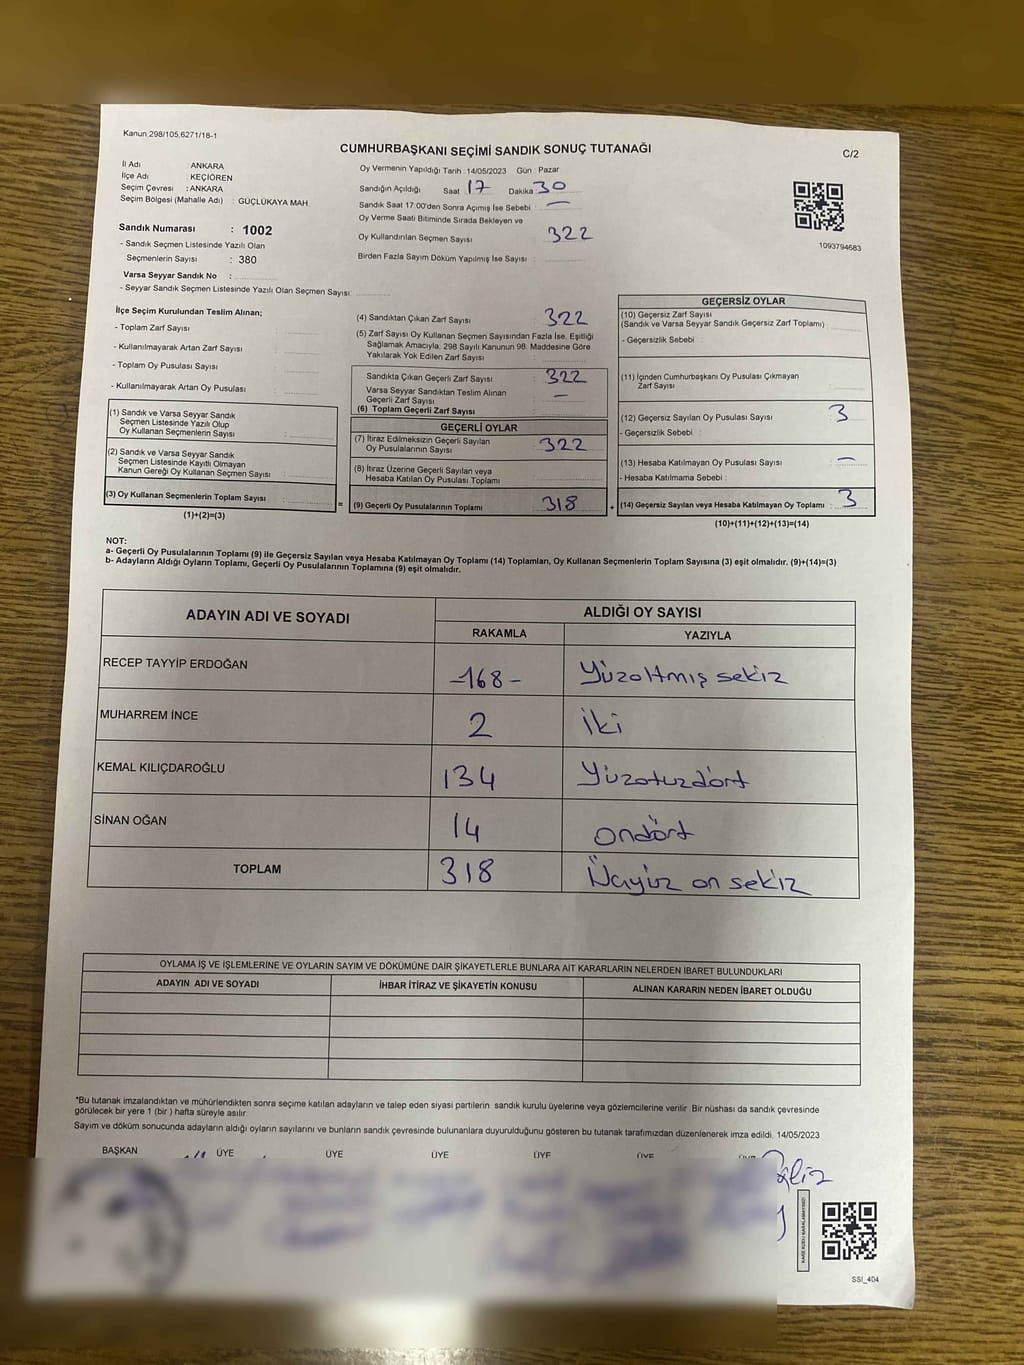 Kanun 298/105,6271/18-1
CUMHURBAŞKANI SEÇİMİ SANDIK SONUÇ TUTANAĞI
C/2
İl Adı : ANKARA
İlçe Adı : KEÇİÖREN
Seçim Çevresi : ANKARA
Seçim Bölgesi (Mahalle Adı) : GÜÇLÜKAYA MAH.
Sandık Numarası : 1002
- Sandık Seçmen Listesinde Yazılı Olan
Seçmenlerin Sayısı : 380
Varsa Seyyar Sandık No :
- Seyyar Sandık Seçmen Listesinde Yazılı Olan Seçmen Sayısı:
Oy Vermenin Yapıldığı Tarih : 14/05/2023 Gün : Pazar
Sandığın Açıldığı Saat 17 Dakika 30
Sandık Saat 17:00'den Sonra Açımış İse Sebebi : —
Oy Verme Saati Bitiminde Sırada Bekleyen ve
Oy Kullandırılan Seçmen Sayısı : 322
Birden Fazla Sayım Döküm Yapılmış İse Sayısı :
1093794683
İlçe Seçim Kurulundan Teslim Alınan;
- Toplam Zarf Sayısı :
- Kullanılmayarak Artan Zarf Sayısı :
- Toplam Oy Pusulası Sayısı :
- Kullanılmayarak Artan Oy Pusulası :
(1) Sandık ve Varsa Seyyar Sandık
Seçmen Listesinde Yazılı Olup
Oy Kullanan Seçmenlerin Sayısı :
(2) Sandık ve Varsa Seyyar Sandık
Seçmen Listesinde Kayıtlı Olmayan
Kanun Gereği Oy Kullanan Seçmen Sayısı :
(3) Oy Kullanan Seçmenlerin Toplam Sayısı :
(1)+(2)=(3)
(4) Sandıktan Çıkan Zarf Sayısı : 322
(5) Zarf Sayısı Oy Kullanan Seçmen Sayısından Fazla İse, Eşitliği
Sağlamak Amacıyla, 298 Sayılı Kanunun 98. Maddesine Göre
Yakılarak Yok Edilen Zarf Sayısı :
Sandıkta Çıkan Geçerli Zarf Sayısı : 322
Varsa Seyyar Sandıktan Teslim Alınan
Geçerli Zarf Sayısı : —
(6) Toplam Geçerli Zarf Sayısı :
GEÇERLİ OYLAR
(7) İtiraz Edilmeksizin Geçerli Sayılan
Oy Pusulalarının Sayısı : 322
(8) İtiraz Üzerine Geçerli Sayılan veya
Hesaba Katılan Oy Pusulası Toplamı :
= (9) Geçerli Oy Pusulalarının Toplamı : 318 +
GEÇERSİZ OYLAR
(10) Geçersiz Zarf Sayısı
(Sandık ve Varsa Seyyar Sandık Geçersiz Zarf Toplamı) :
- Geçersizlik Sebebi :
(11) İçinden Cumhurbaşkanı Oy Pusulası Çıkmayan
Zarf Sayısı :
(12) Geçersiz Sayılan Oy Pusulası Sayısı : 3
- Geçersizlik Sebebi :
(13) Hesaba Katılmayan Oy Pusulası Sayısı : —
- Hesaba Katılmama Sebebi :
(14) Geçersiz Sayılan veya Hesaba Katılmayan Oy Toplamı : 3
(10)+(11)+(12)+(13)=(14)
NOT:
a- Geçerli Oy Pusulalarının Toplamı (9) ile Geçersiz Sayılan veya Hesaba Katılmayan Oy Toplamı (14) Toplamları, Oy Kullanan Seçmenlerin Toplam Sayısına (3) eşit olmalıdır. (9)+(14)=(3)
b- Adayların Aldığı Oyların Toplamı, Geçerli Oy Pusulalarının Toplamına (9) eşit olmalıdır.
ADAYIN ADI VE SOYADI
ALDIĞI OY SAYISI
RAKAMLA YAZIYLA
RECEP TAYYİP ERDOĞAN -168- Yüzaltmış sekiz
MUHARREM İNCE 2 iki
KEMAL KILIÇDAROĞLU 134 Yüzotuzdört
SİNAN OĞAN 14 ondört
TOPLAM 318 Üçyüz on sekiz
OYLAMA İŞ VE İŞLEMLERİNE VE OYLARIN SAYIM VE DÖKÜMÜNE DAİR ŞİKAYETLERLE BUNLARA AİT KARARLARIN NELERDEN İBARET BULUNDUKLARI
ADAYIN ADI VE SOYADI İHBAR İTİRAZ VE ŞİKAYETİN KONUSU ALINAN KARARIN NEDEN İBARET OLDUĞU
*Bu tutanak imzalandıktan ve mühürlendikten sonra seçime katılan adayların ve talep eden siyasi partilerin sandık kurulu üyelerine veya gözlemcilerine verilir. Bir nüshası da sandık çevresinde
görülecek bir yere 1 (bir ) hafta süreyle asılır.
Sayım ve döküm sonucunda adayların aldığı oyların sayılarını ve bunların sandık çevresinde bulunanlara duyurulduğunu gösteren bu tutanak tarafımızdan düzenlenerek imza edildi. 14/05/2023
BAŞKAN ÜYE ÜYE ÜYE ÜYE ÜYE ÜYE
SSI_404